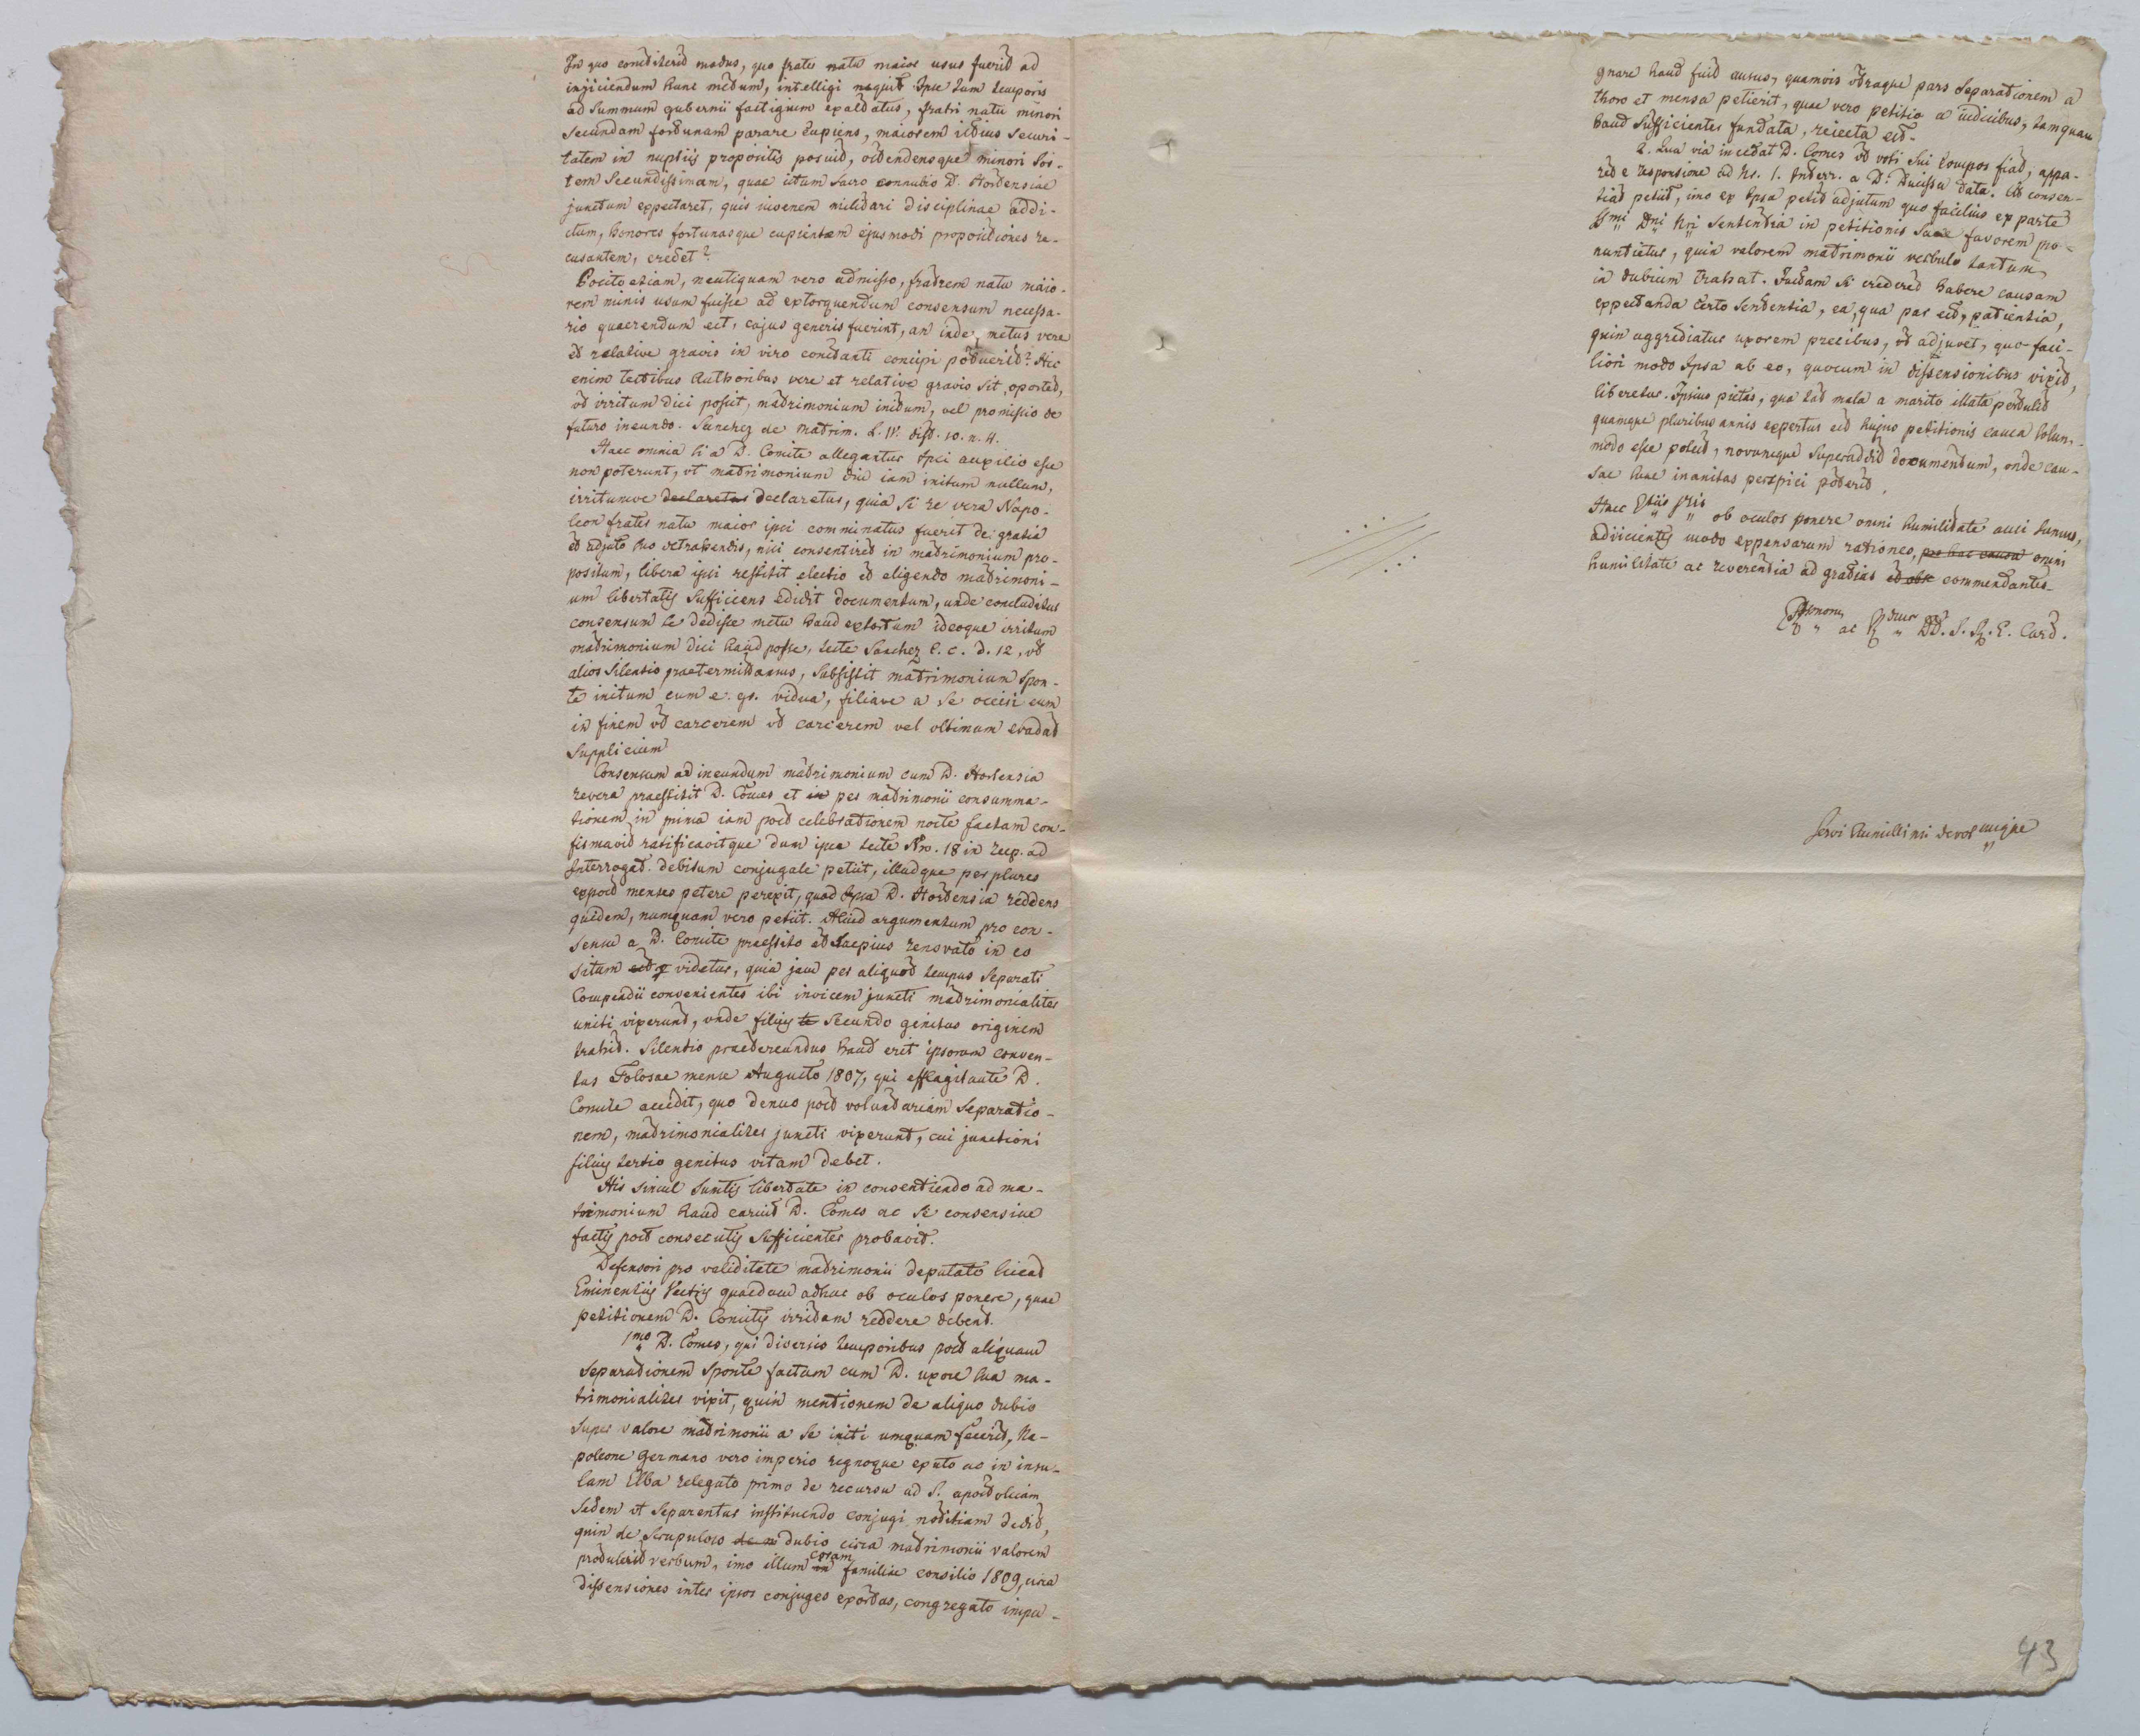 In quo constiterit modus, quo frater natu maior usus fuerit ad
injiciendum hunc metum, intelligi nequit. Ipse tum temporis
ad summum gubernii fastigium exaltatus, fratri natu minori
secundam fortunam parare cupiens, maiorem istius securi-
tatem in nuptiis propositis posuit, ostendensque minori sor-
tem secundissimam, quae istum sacro connubio D. Hortensiae
junctum expectaret, quis juvenem militari disciplinae addi-
ctum, honores fortunasque cupientem ejusmodi propositiones re-
cusantem, credet?
Posito etiam, neutiquam vero admisso, fratrem natu maio-
rem minis usum fuisse ad extorquendum consensum necessa-
rio quaerendum est, cujus generis fuerint, an inde metus vere
et relative gravis in viro constanti concipi potuerit? Hic
enim testibus Authoribus vere et relative gravis sit, oportet,
ut irritum dici possit, matrimonium initum, vel promissio de
futuro ineundo. Sanchez de matrim. L. IV. disp. 10. n. 4.
Haec omnia si a D. Comite allegantur Ipsi auxilio esse
non poterunt, ut matrimonium diu iam initum nullum,
irritumve declaretur declaretur, quia si re vera Napo-
leon frater natu maior ipsi comminatus fuerit de gratia
et adjuto suo detrahendis, nisi consentiret in matrimonium pro-
positum, libera ipsi restitit electio et eligendo matrimoni-
um libertatis sufficiens edidit documentum, unde concluditur
consensum se dedisse metu haud extortum ideoque irritum
matrimonium dici haud posse, teste Sanchez l. c. d. 12, ut
alios silentio praetermittamus, subsistit matrimonium spon-
te initum cum e. gr. vidua, filiave a se occisi eum
in finem ut carcerem ut carcerem vel ultimum evadat
supplicium
Consensum ad ineundum matrimonium cum D. Hortensia
revera praestitit D. Comes et in per matrimonii consumma-
tionem in prima iam post celebrationem nocte factam con-
firmavit ratificavitque dum ipse teste Nro. 18 in resp. ad
Interrogat. debitum conjugale petiit, illudque per plures
expost menses petere perexit, quod Ipsa D. Hortensia reddens
quidem, numquam vero petiit. Aliud argumentum pro con-
sensu a D. Comite praestito et saepius renovato in eo
situm est videtur, quia jam per aliquod tempus separati
Compendii convenientes ibi invicem juncti matrimonialiter
uniti vixerunt, unde filius te secundo genitus originem
trahit. Silentio praetereundus haud erit ipsorum conven-
tus Tolosae mense Augusto 1807, qui efflagitante D.
Comite accidit, quo denuo post voluntariam separatio-
nem, matrimonialiter juncti vixerunt, cui junctioni
filius tertio genitus vitam debet.
His simul sumtis libertate in consentiendo ad ma-
trimonium haud caruit D. Comes ac se consensisse
factis post consecutis sufficienter probavit.
Defensori pro validitate matrimonii deputato liceat
Eminentiis Vestris quaedam adhuc ob oculos ponere, quae
petitionem D. Comitis irritam reddere debent.
1mo D. Comes, qui diversis temporibus post aliquam
separationem sponte factam cum D. uxore sua ma-
trimonialiter vixit, quin mentionem de aliquo dubio
super valore matrimonii a se initi umquam fecerit, Na-
poleone germano vero imperio regnoque exuto ac in insu-
lam Elba relegato primo de recursu ad S. apostolicam
Sedem ut separentur instituendo conjugi notitiam dedit,
quin de scrupuloso de m dubio circa matrimonii valorem
protulerit verbum, imo illum in coram familiae consilio 1809, circa
dissensiones inter ipsos conjuges exortas, congregato impu-
gnare haud fuit ausus, quamvis utraque pars separationem a
thoro et mensa petierit, quae vero petitio a iudicibus, tamquam
haud sufficienter fundata, reiecta est.
2. Qua via incedat D. Comes ut voti sui compos fiat, appa-
ret e responsione ad Nr. 1. Interr. a D. Ducissa data. Ut consen-
tiat petiit, imo ex Ipsa petit adjutum quo facilius ex parte
SSmi Dni Nri sententia in petitionis suae favorem pro-
nuntietur, quin valorem matrimonii verbulo tantum
in dubium trahat. Justam si crederet habere causam
expectanda certo sententia, ea, qua par est, patientia,
quin aggrediatur uxorem precibus, ut adjuvet, quo faci-
liori modo Ipsa ab eo, quocum in dissensionibus vixit,
liberetur. Ipsius pietas, qua tot mala a marito illata pertulit
quamque pluribus annis expertus est hujus petitionis causa solum-
modo esse potest, novumque superaddit documentum, unde cau-
sae suae inanitas perspici poterit.
Haec Emiis Vris ob oculos ponere omni humilitate ausi sumus,
adiicientes modo expensarum rationes, pro hac causa omni
humilitate ac reverentia ad gratias et obse commendantes.
ac DD. S. R. E. Card.
servi humillimi devotissimique
43